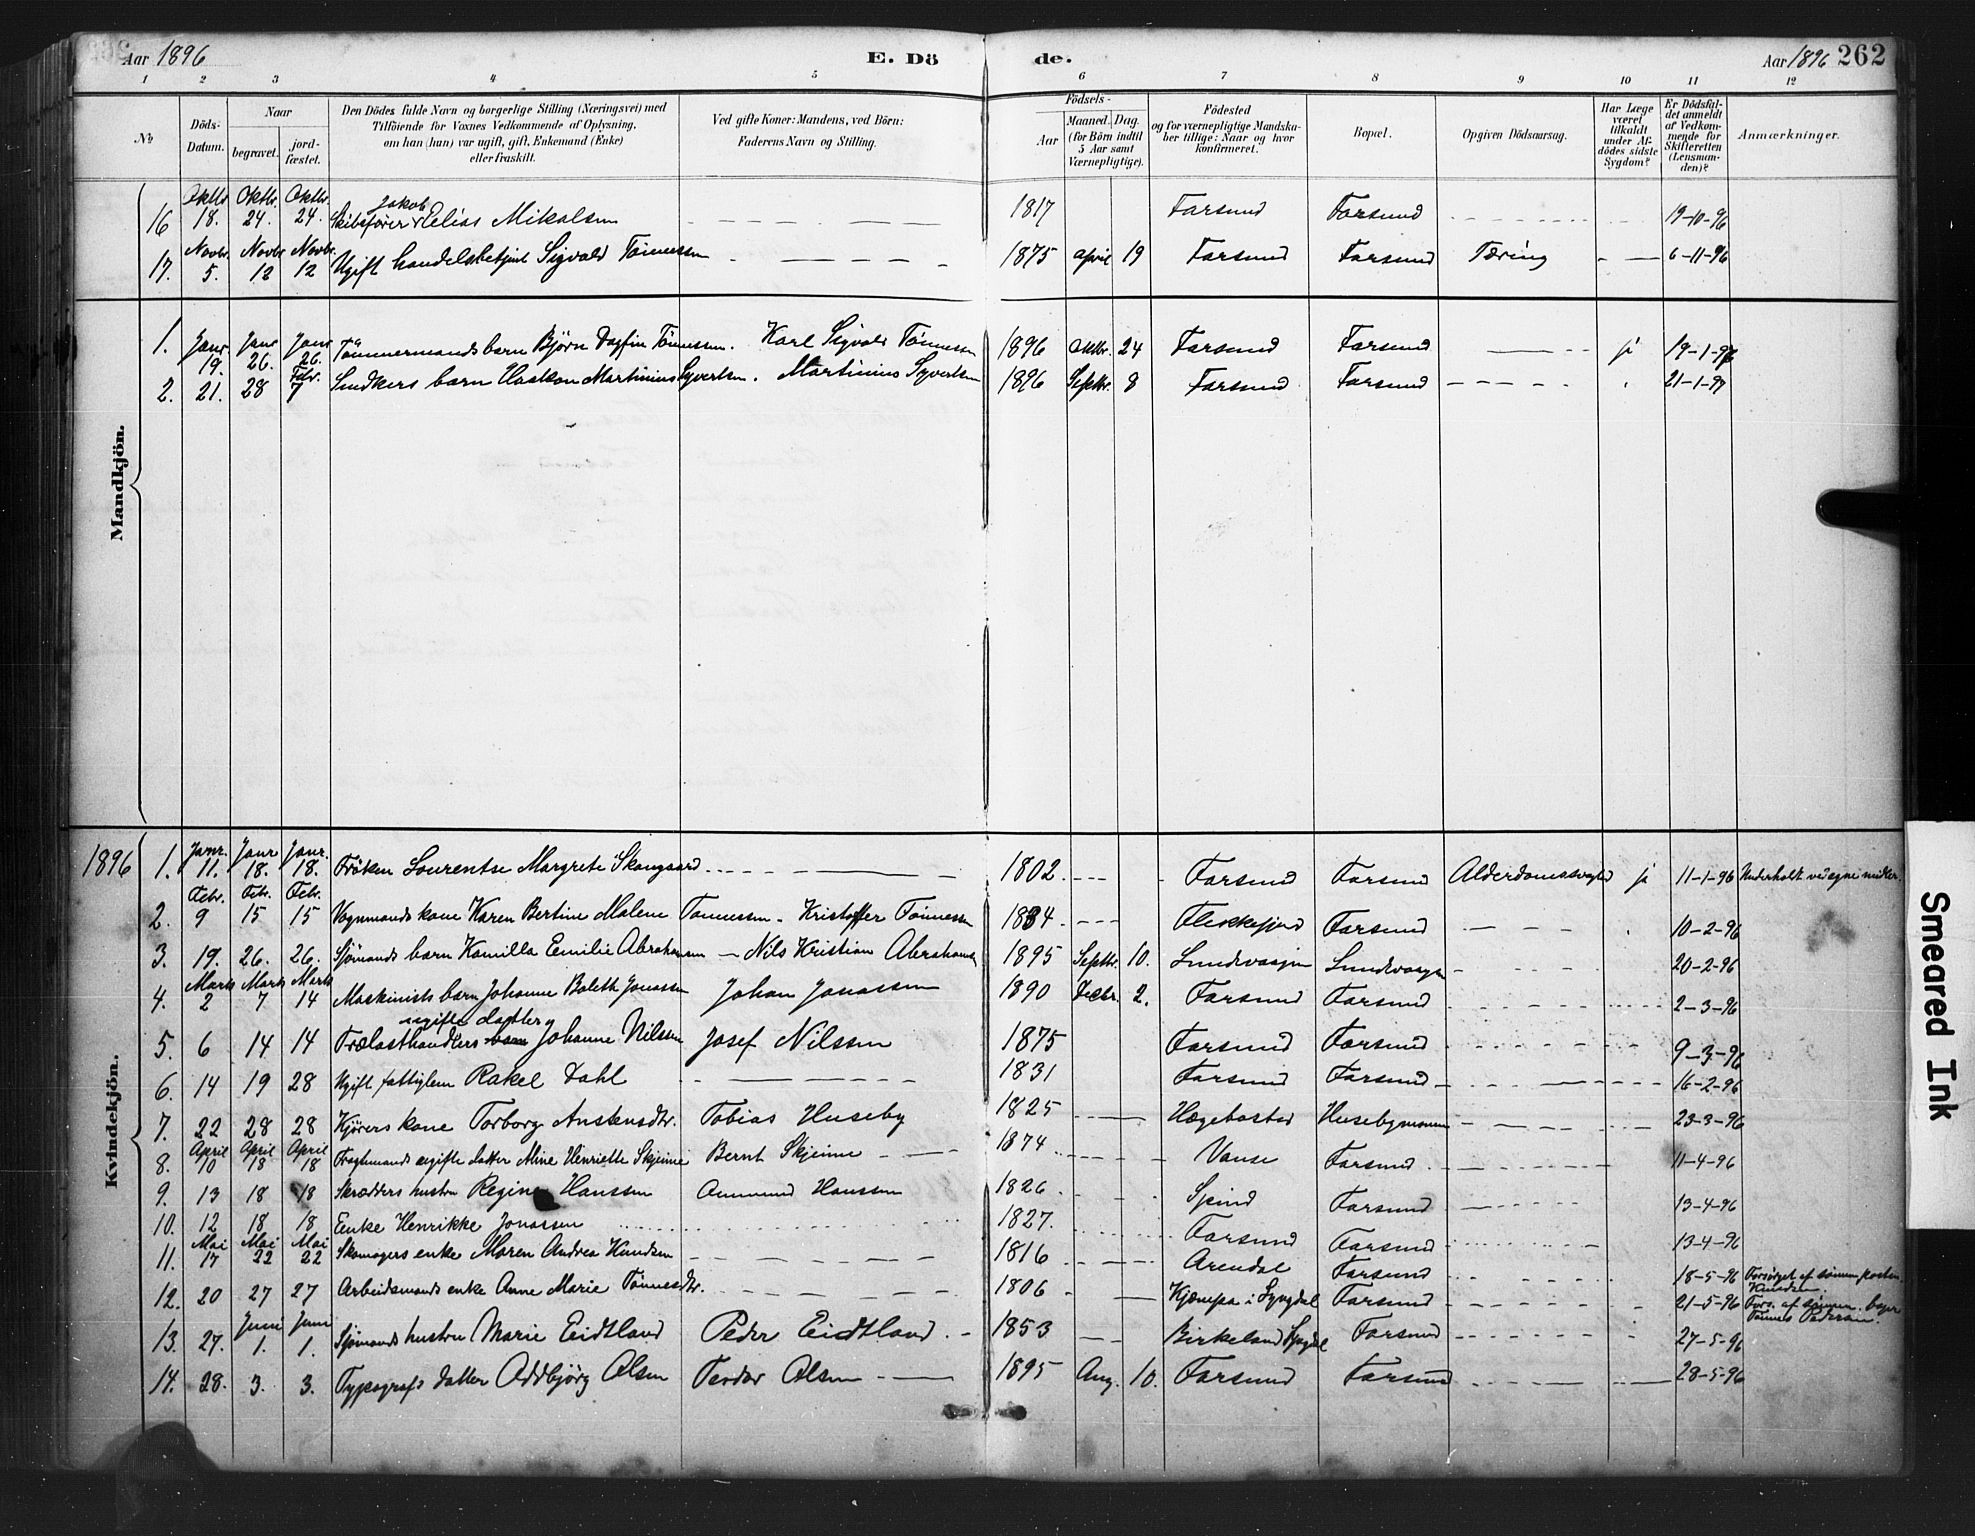 Aar 1896 E. Dö de. Aar 1896 262
1 2 3 4 5 6 7 8 9 10 11 12
No Döds-Datum. Naar begravet. jordfæstet. Den Dödes fulde Navn og borgerlige Stilling (Næringsvei) med Tilföiende for Voxnes Vedkommende af Oplysning, om han (hun) var ugift, gift, Enkemand (Enke) eller fraskilt. Ved gifte Koner: Mandens, ved Börn: Faderens Navn og Stilling. Födsels- Aar Maaned. Dag. (for Börn indtil 5 Aar samt Værnepligtige). Födested og for værnepligtige Mandskaber tillige: Naar og hvor konfirmeret. Bopæl. Opgiven Dödsaarsag. Har Læge været tilkaldt under Afdödes sidste Sygdom? Er Dödsfaldet anmeldt af Vedkommende for Skifteretten (Lensmanden)? Anmærkninger.
16 Oktbr. 18. Oktbr. 24. Oktbr. 24. Skibsfører Jakob Eelias Mikalsen 1817 Farsund Farsund 19-10-96
17. Novbr. 5. Novbr. 12 Novbr. 12 Ugift handelsbetjent Sigvald Tönnessen 1875 april 19 Farsund Farsund Tæring 6-11-96
Mandkjön.
1. Janr. 19. Janr 26. Janr 26. Tömmermands barn Björn Dagfin Tönnessen. Karl Sigvald Tönnessen 1896 Oktbr. 24 Farsund Farsund ja 19-1-97
2. 21. 28 Febr. 7 Smedkers barn Haakon Martinius Syvertsen. Martinius Syvertsen 1896 Septbr. 8 Farsund Farsund 21-1-97
Kvindekjön.
1896 1. Janr. 11. Janr 18. Janr. 18. Fröken Lourentse Margrete Skougaard 1802 Farsund Farsund Alderdomssvaghed ja 11-1-96 Underholdt ved egne midler.
2. Febr. 9 Febr. 15 Febr. 15 Vognmands kone Karen Bertine Malene Tönnessen - Kristoffer Tönnessen 1834 Flekkefjord Farsund 10-2-96
3. 19. 26. 26. Sjömands barn Kamilla Emilie Abrahamsen - Nils Kristian Abrahamsen 1895 Septbr. 10. Lundevaagen Lundevaagen 20-2-96
4. Marts 2 Marts 7 Marts 14 Maskinists barn Johanne Boleth Jonassen Johan Jonassen 1890 Decbr. 2. Farsund Farsund 2-3-96
ugifte datter
5. 6 14 14 Trælasthandlers barn Johanne Nilssen Josef Nilssen 1875 Farsund Farsund 9-3-96
6. 14 19 28 Ugift fattiglem Rakel Dahl 1831 Farsund Farsund 16-2-96
7. 22 28 28 Kjörers kone Torborg Austensdtr. Tobias Huseby 1825 Hægebostad 23-3-96
8. April 10 April 18 April 18 Fragtmands ugifte datter Aline Henriette Skjeime Bernt Skjeime 1874 Vanse Farsund 11-4-96
9. 13 18 18 Skrædders hustru Regine Hanssen Ammund Hanssen 1826 Spind Farsund 13-4-96
10. 12 18 18 Eenke Henrikke Jonassen 1827. Farsund Farsund 13-4-96
11. Mai 17 Mai 22 Mai 22 Skomagers enke Maren Andrea Knudsen 1816 Arendal Farsund 18-5-96 Forsörget af sönnen Knudsen.
12. 20 27 27 Arbeidsmands enke Anne Marie Tönnesdtr. 1806 Kjæmpa i Lyngdal Farsund 21-5-96 Fors. af sönnen, bager Tönnes Pedersen.
13. 27. Juni 1. Juni 1. Sjömands hustru Marie Eidtland Peder Eidtland 1853 Birkeland Lyngdal Farsund 27-5-96
14. 28. 3. 3. Typografs datter Oddbjörg Olsen Teodor Olsen 1895 Aug. 10. Farsund Farsund 28-5-96
Smeared Ink